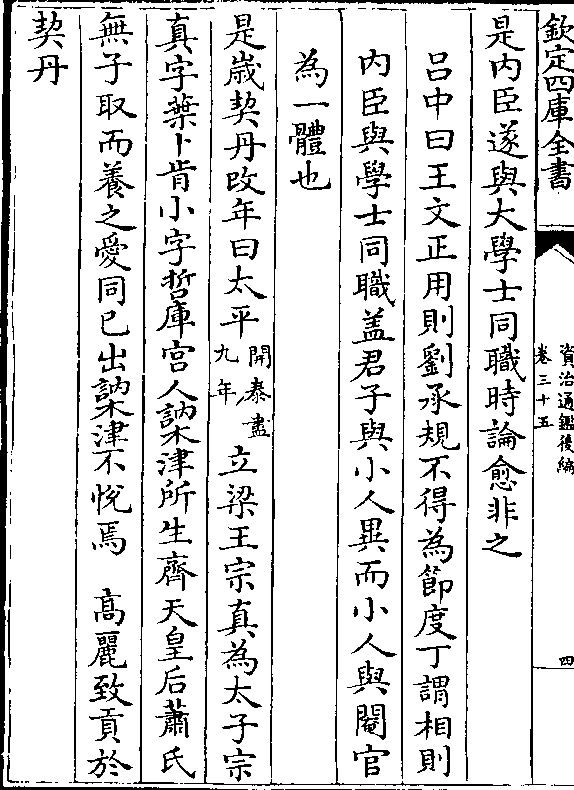 欽定四庫全書
資治通鑑後編
卷三十五
四
是内臣遂與大學士同職時論愈非之
吕中曰王文正用則劉承規不得為節度丁謂相則
内臣與學士同職盖君子與小人異而小人與閹官
為一體也
是嵗契丹改年曰太平開泰盡九年立梁王宗真為太子宗
真字葉卜肯小字哲庫宫人訥木津所生齊天皇后蕭氏
無子取而養之愛同已出訥木津不悦焉　髙麗致貢於
契丹